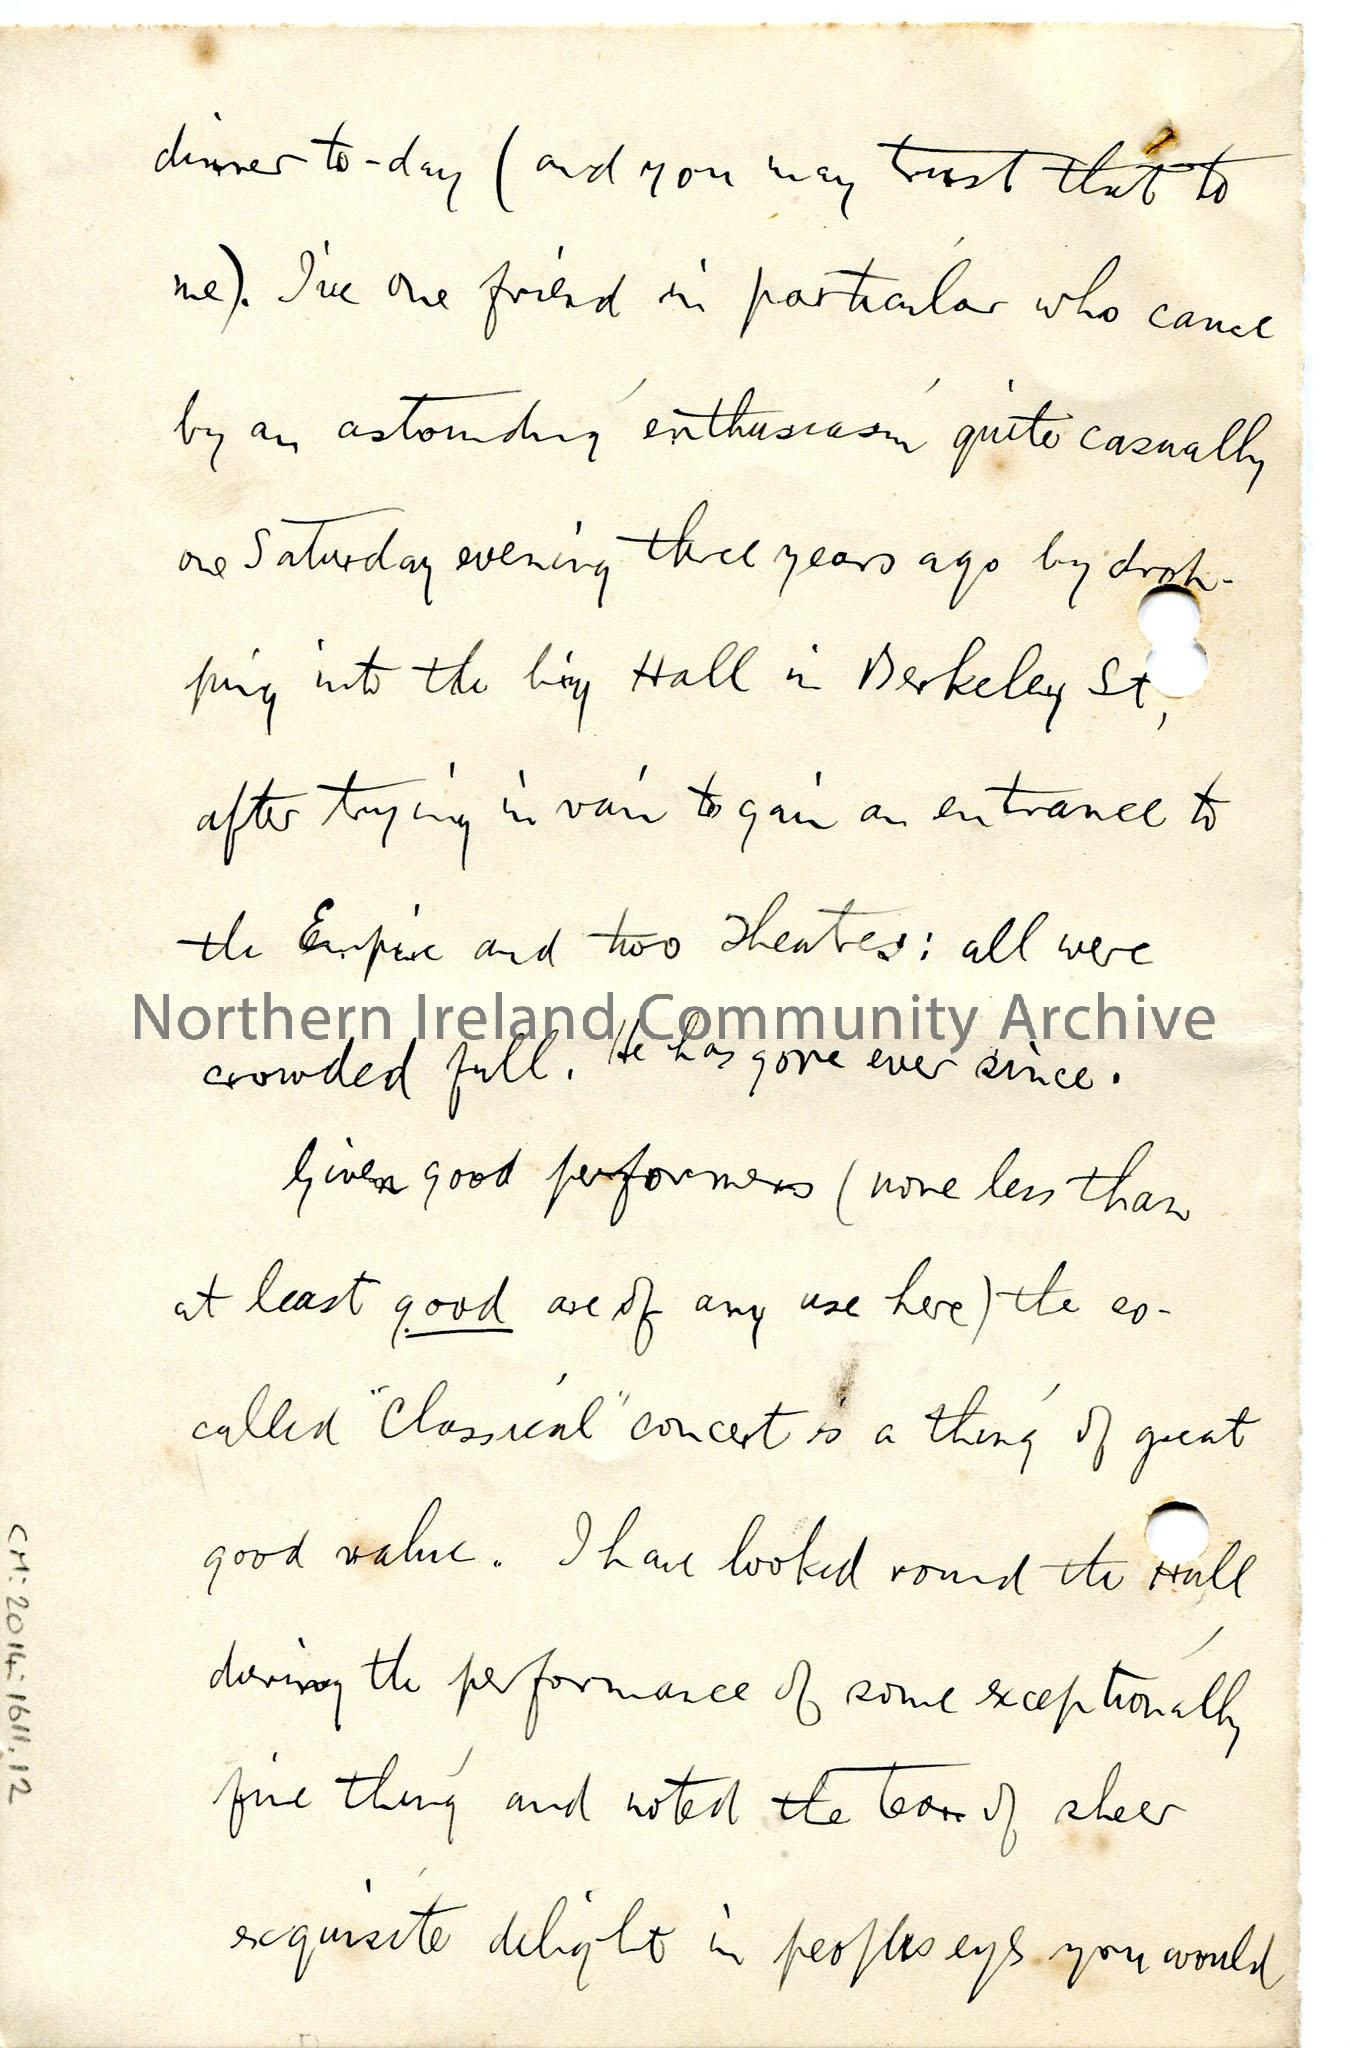 dinner to-day (and you may trust that to
me). I've one friend in particular who came
by an astounding enthusiasm quite casually
one Saturday evening three years ago by drop-
ping into the big Hall in Berkeley St,
after trying in vain to gain an entrance to
the Empire and two Theatres: all were
Northern Ireland Community Archive
crowded full. He has gone ever since.
Given good performers (none less than
at least good are of any use here) the so-
called "Classical" concert is a thing of great
good value. I have looked round the Hall
during the performance of some exceptionally
fine thing and noted the tears of sheer
exquisite delight in peoples eyes you would
CM:2014:1611.12